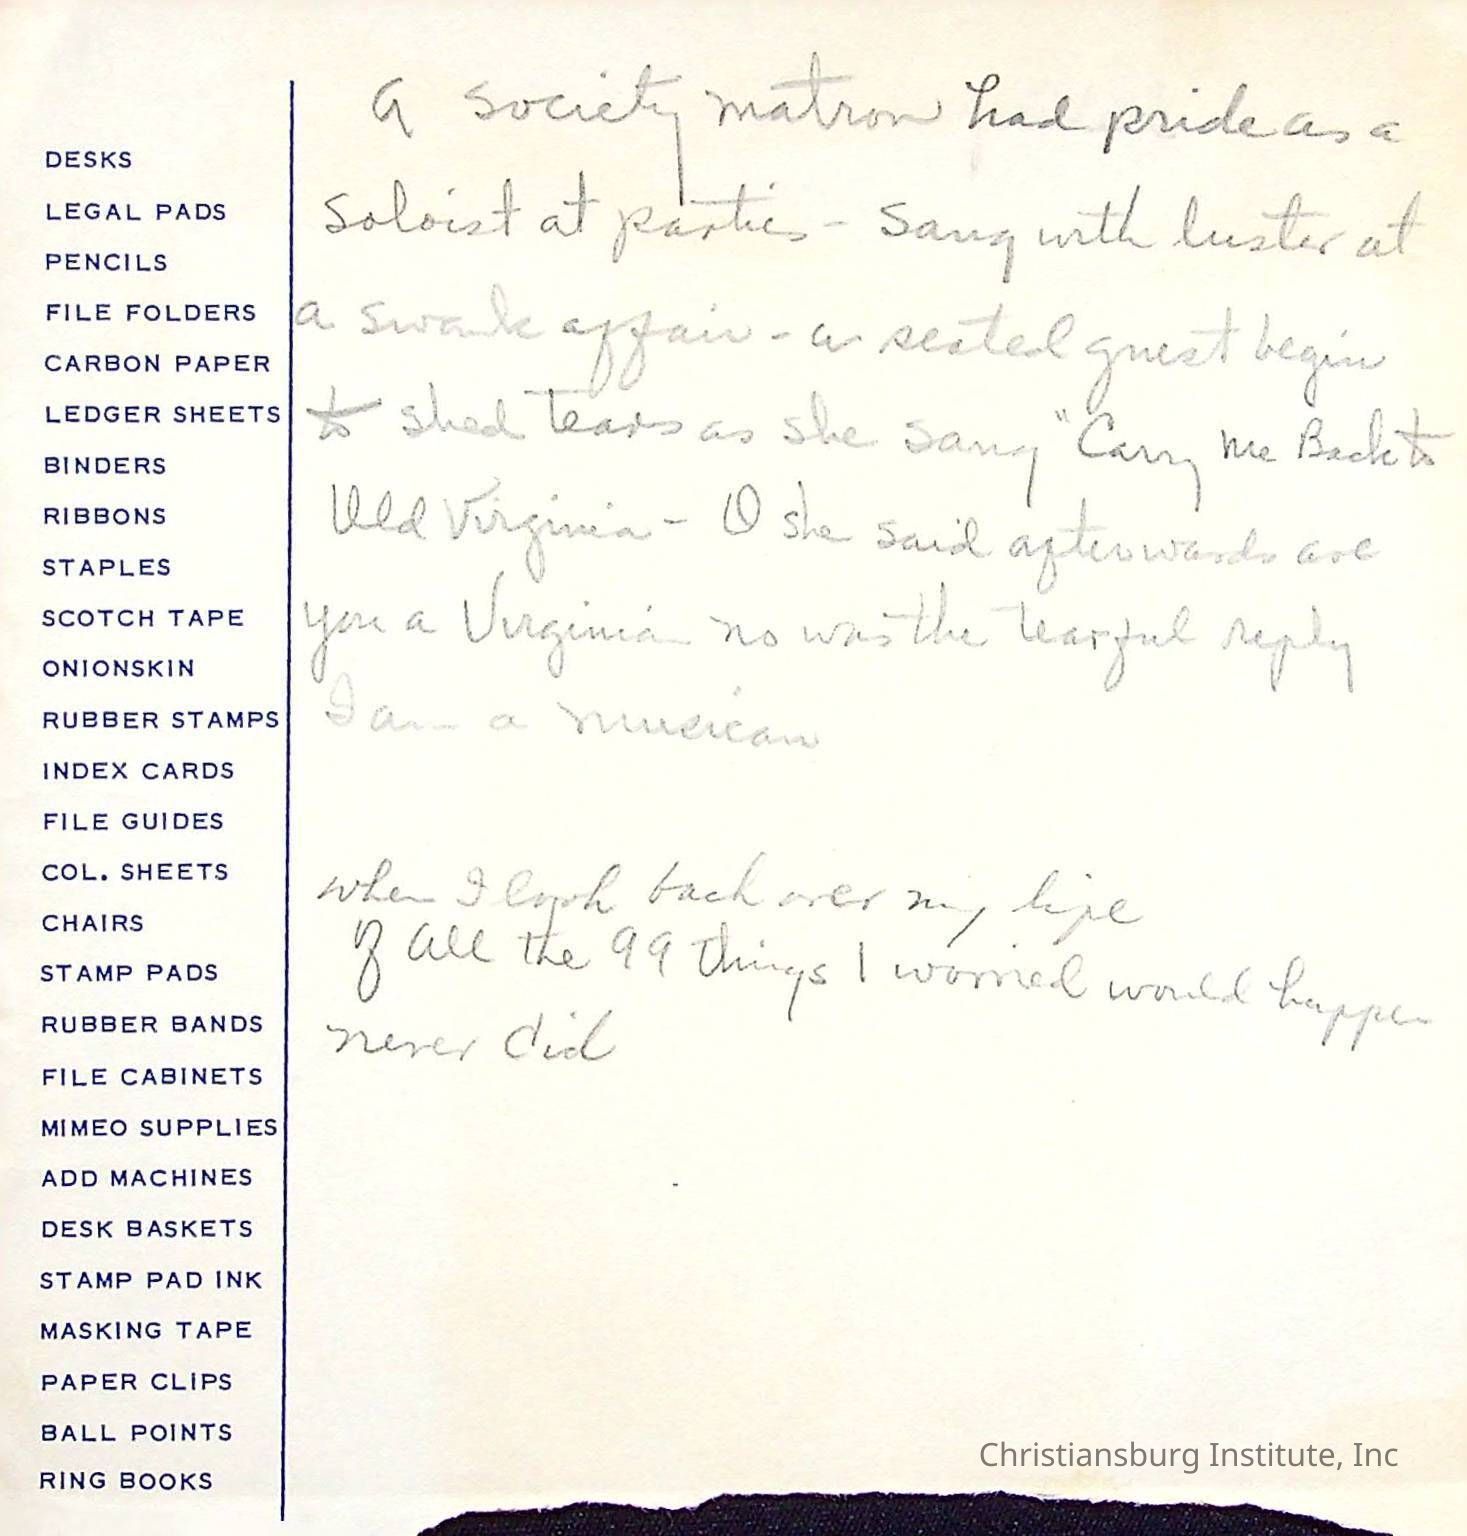 DESKS
LEGAL PADS
PENCILS
FILE FOLDERS
CARBON PAPER
LEDGER SHEETS
BINDERS
RIBBONS
STAPLES
SCOTCH TAPE
ONIONSKIN
RUBBER STAMPS
INDEX CARDS
FILE GUIDES
COL. SHEETS
CHAIRS
STAMP PADS
RUBBER BANDS
FILE CABINETS
MIMEO SUPPLIES
ADD MACHINES
DESK BASKETS
STAMP PAD INK
MASKING TAPE
PAPER CLIPS
BALL POINTS
RING BOOKS
A society matron had pride as a
soloist at parties - Sang with luster at
a swank affair - a seated guest begin
to shed tears as she sang "Carry Me Back to
Old Virginia - O she said afterwards are
you a Virginian no was the tearful reply
I am a musican
when I look back over my life
of all the 99 things I worried would happen
never did
Christiansburg Institute, Inc